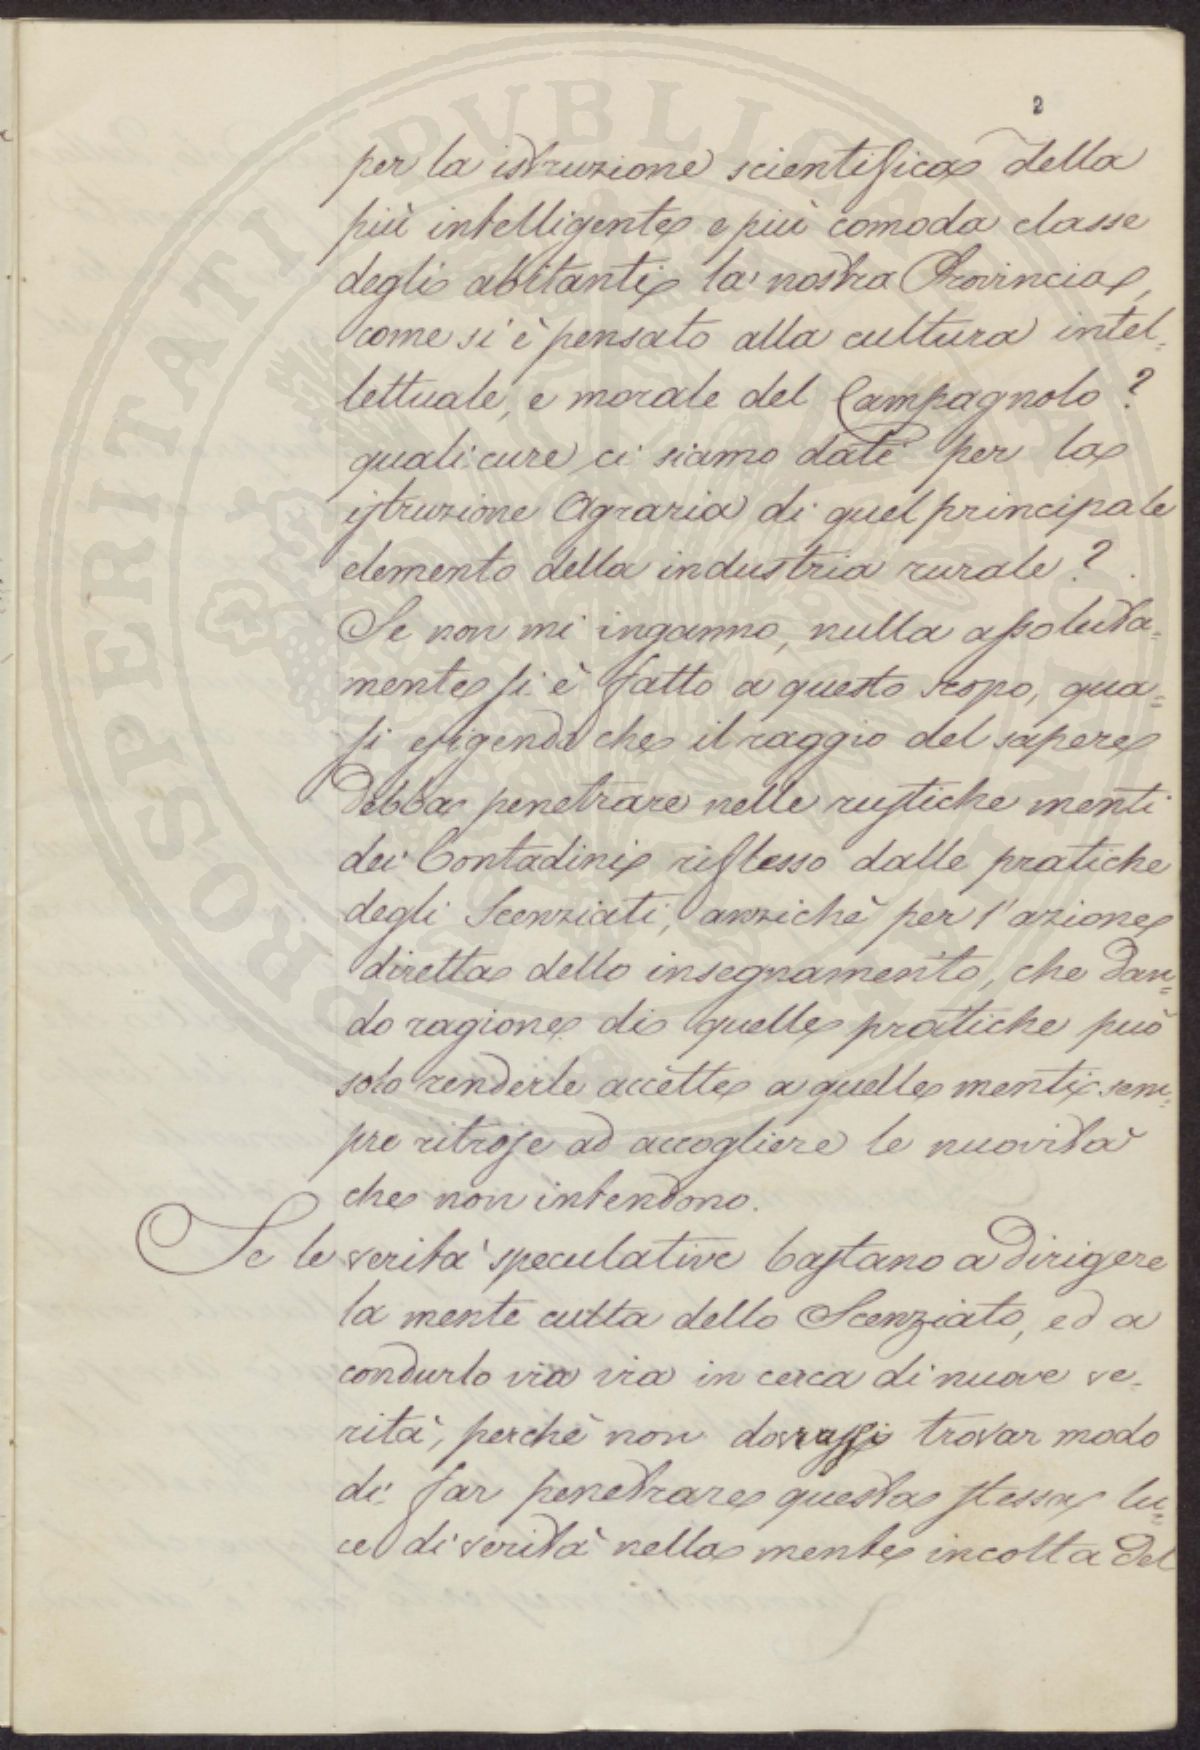 2
per la istruzione scientifica della
più intelligente e più comoda classe
degli abitanti la nostra Provincia,
come si è pensato alla cultura intel=
lettuale, e morale del Campagnolo?
quali cure ci siamo dati per la
istruzione Agraria di quel principale
elemento della industria rurale?
Se non mi inganno, nulla assoluta=
mente si è fatto a questo scopo, qua=
si esigendo che il raggio del sapere
debba penetrare nelle rustiche menti
dei Contadini riflesso dalle pratiche
degli Scenziati, anzichè per l'azione
diretta dello insegnamento, che dan=
do ragione di quelle pratiche può
solo renderle accette a quelle menti sem=
pre ritrose ad accogliere le nuovità
che non intendono.
Se le verità speculative bastano a dirigere
la mente culta dello Scenziato, ed a
condurlo via via in cerca di nuove ve-
rità, perchè non dovrassi trovar modo
di far penetrare questa stessa lu=
ce di verità nella mente incolta del
PROSPERITATI PUBLICAE